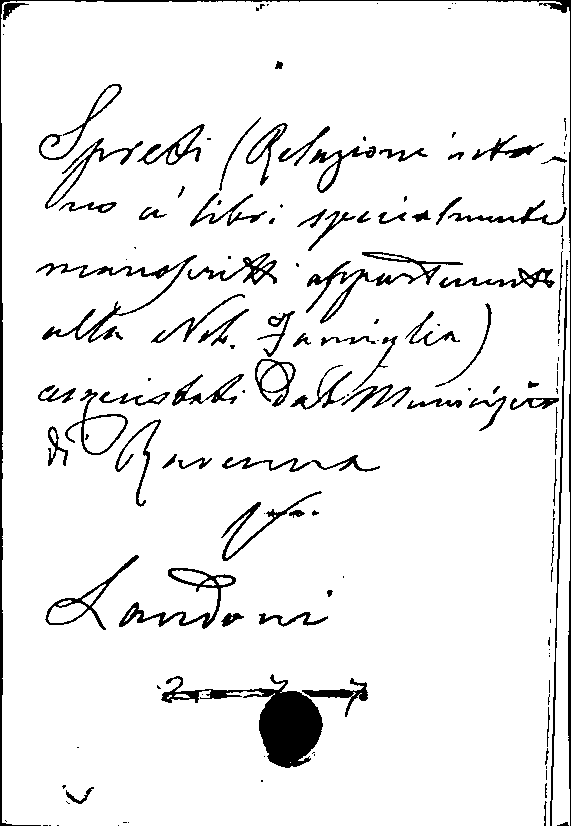 Spreti (Relazione intor-
no a' libri specialmente
manoscritti appartenenti
alla Nob. Famiglia)
acquistati dal Municipio
di Ravenna
Landoni
277